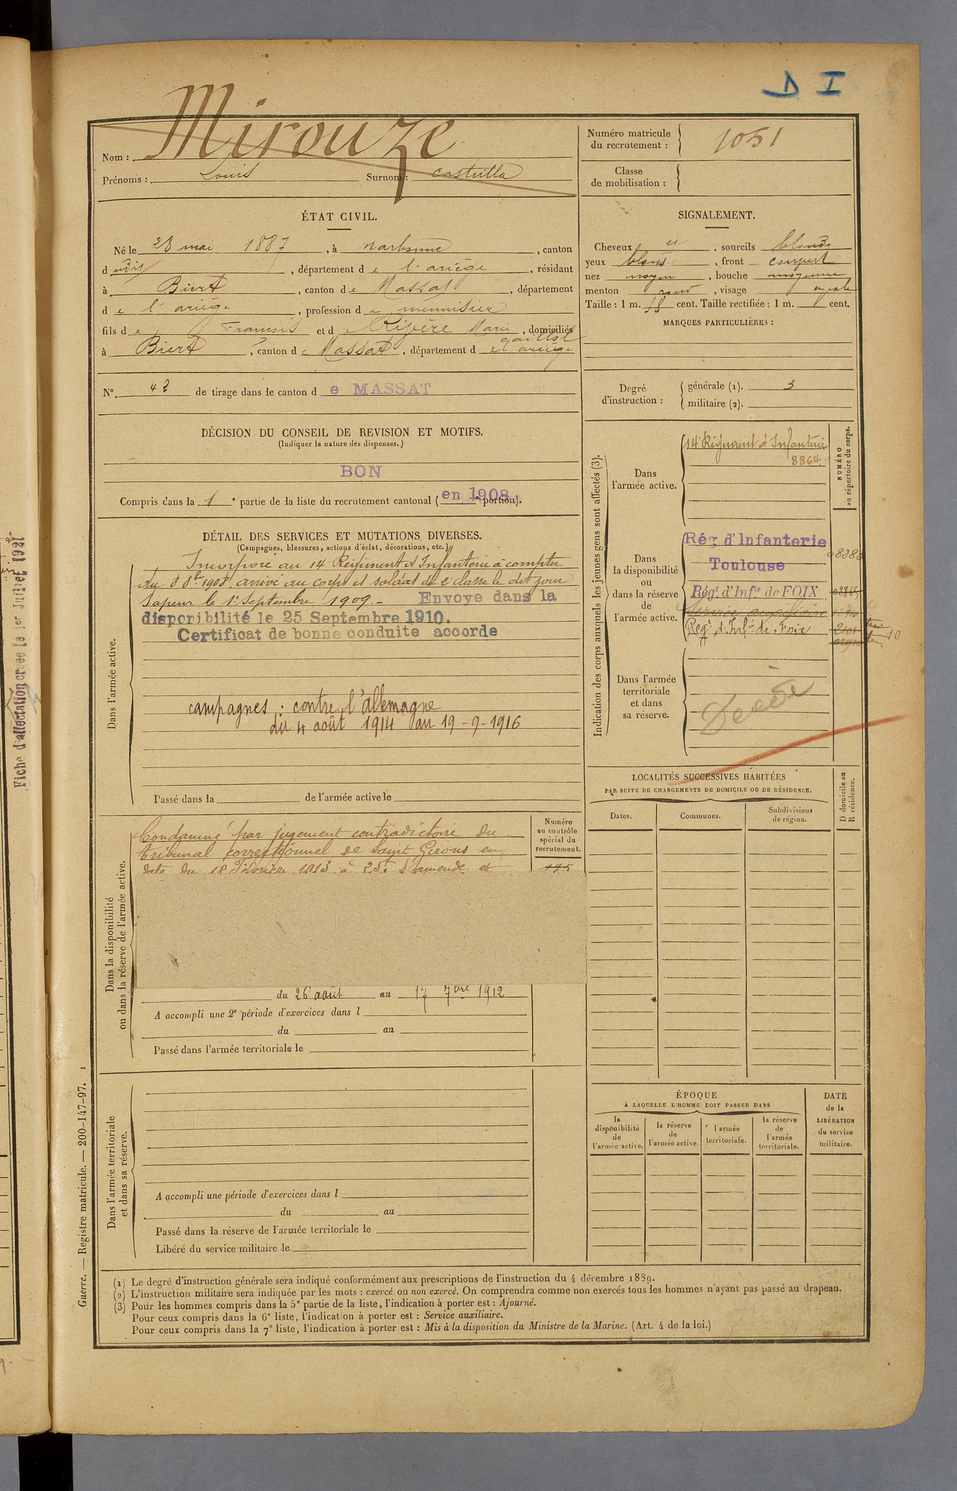 D I
Nom : Mirouze
Prénoms : Louis Surnom : Castulla
Numéro matricule
du recrutement : 1051
Classe
de mobilisation :
ÉTAT CIVIL.
Né le 28 mai 1887, à Narbonne, canton
d, département de l'ariège, résidant
à Biert, canton de Massat, département
de l'ariège, profession de menuisier
fils de François et de Ripère Marie, domiciliés
à Biert, canton de Massat, département d
SIGNALEMENT.
Cheveux et, sourcils blonds
yeux bleus, front
nez moyen, bouche moyenne
menton rond, visage ovale
Taille : 1 m. cent. Taille rectifiée : 1 m. cent.
MARQUES PARTICULIÈRES :
N° 42 de tirage dans le canton de MASSAT
Degré
d'instruction :
générale (1). 3
militaire (2).
DÉCISION DU CONSEIL DE REVISION ET MOTIFS.
(Indiquer la nature des dispenses.)
BON
Compris dans la 1e partie de la liste du recrutement cantonal (en 1908 portion).
DÉTAIL DES SERVICES ET MUTATIONS DIVERSES.
(Campagnes, blessures, actions d'éclat, décorations, etc.)
Dans l'armée active.
Incorporé au 14 Régiment d'Infanterie à compter
du 8 8bre 1908 arrivé au corps et soldat de 2e classe le dit jour
Sapeur le 1er Septembre 1909.- Envoye dans la
disponibilité le 25 Septembre 1910.
Certificat de bonne conduite accorde
campagnes : contre l'allemagne
du 4 août 1914 au 19-9-1916
Passé dans la de l'armée active le
Indication des corps auxquels les jeunes gens sont affectés (3).
NUMÉRO
au répertoire du corps.
Dans
l'armée active.
14e Régiment d'Infanterie
8864
Dans
la disponibilité
ou
dans la réserve
de
l'armée active.
Rég d'Infanterie
Toulouse
Régt d'Infie de FOIX
Service auxiliaire
Regt d'Infie de Foix
10
Dans l'armée
territoriale
et dans
sa réserve.
Décédé
Dans la disponibilité
ou dans la réserve de l'armée active.
Condamné par jugement contradictoire du
tribunal correctionnel de Saint Girons en
date du 18 Février 1913 à 25f d'amende et
Numéro
au contrôle
spécial du
recrutement.
du 26 août au 17 7bre 1912
A accompli une 2e période d'exercices dans l
du au
Passé dans l'armée territoriale le
LOCALITÉS SUCCESSIVES HABITÉES
PAR SUITE DE CHANGEMENTS DE DOMICILE OU DE RÉSIDENCE.
Dates.
Communes.
Subdivisions
de région.
D domicile ou
R résidence.
Dans l'armée territoriale
et dans sa réserve.
A accompli une période d'exercices dans l
du au
Passé dans la réserve de l'armée territoriale le
Libéré du service militaire le
ÉPOQUE
À LAQUELLE L'HOMME DOIT PASSER DANS
la
disponibilité
de
l'armée active.
la réserve
de
l'armée active.
l'armée
territoriale.
la réserve
de
l'armée
territoriale.
DATE
de la
LIBÉRATION
du service
militaire.
(1) Le degré d'instruction générale sera indiqué conformément aux prescriptions de l'instruction du 4 décembre 1889.
(2) L'instruction militaire sera indiquée par les mots : exercé ou non exercé. On comprendra comme non exercés tous les hommes n'ayant pas passé au drapeau.
(3) Pour les hommes compris dans la 5e partie de la liste, l'indication à porter est : Ajourné.
Pour ceux compris dans la 6e liste, l'indication à porter est : Service auxiliaire.
Pour ceux compris dans la 7e liste, l'indication à porter est : Mis à la disposition du Ministre de la Marine. (Art. 4 de la loi.)
Guerre. — Registre matricule. — 200-147-97. 1
Fiche d'affectation créée le 1er Juillet 1921